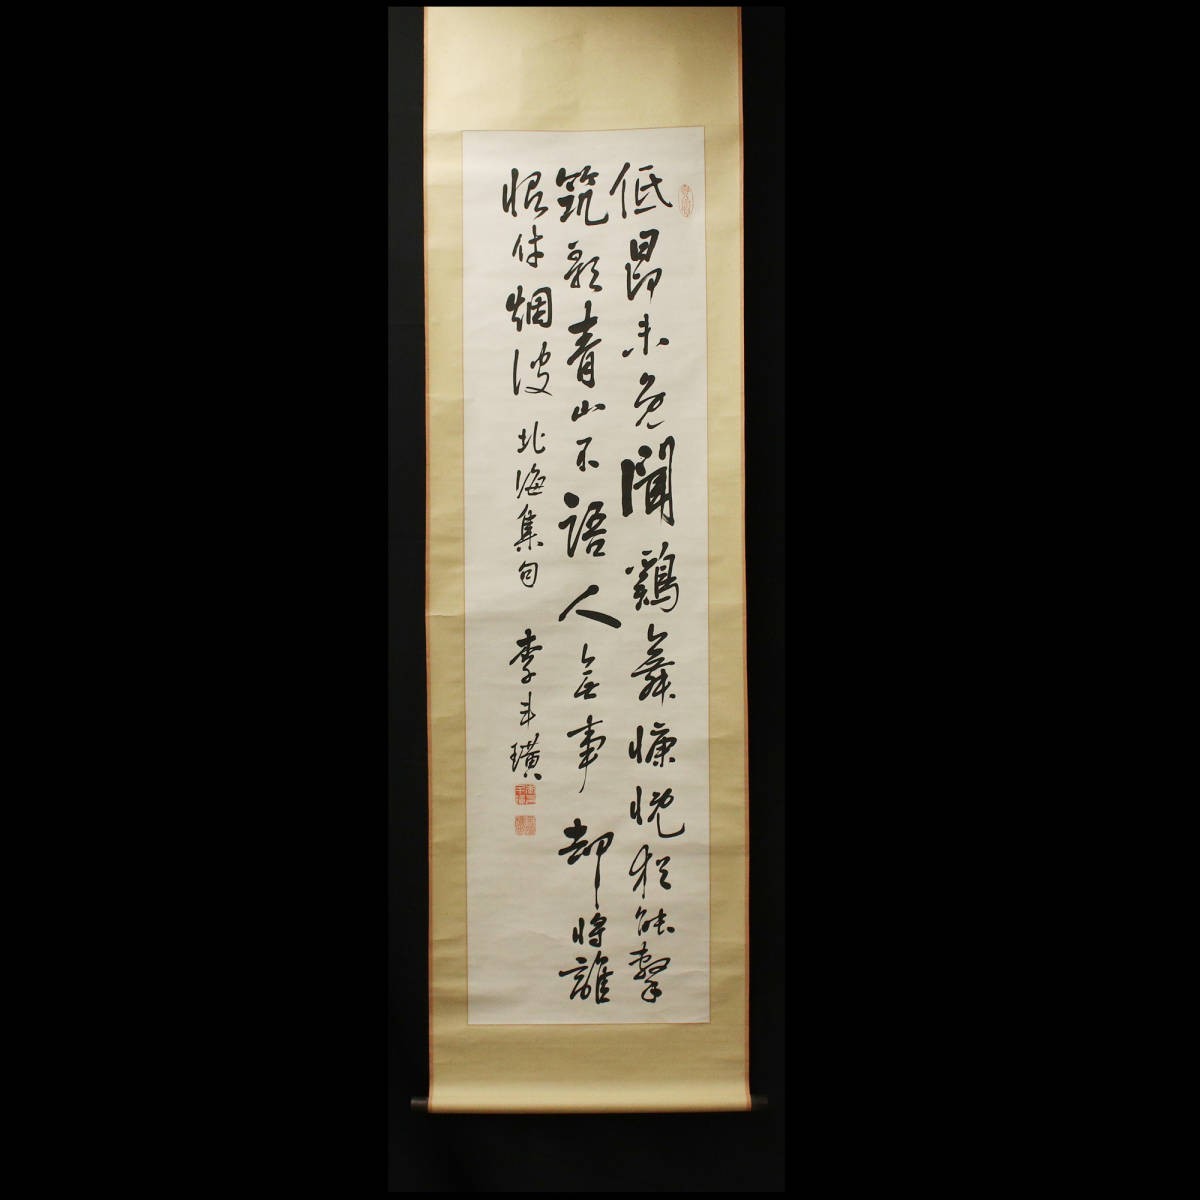 低昂未免聞鷄舞慷慨猶能擊
筑歌青山不語人無事却將誰
恨付烟波 北海集句 李斗璜